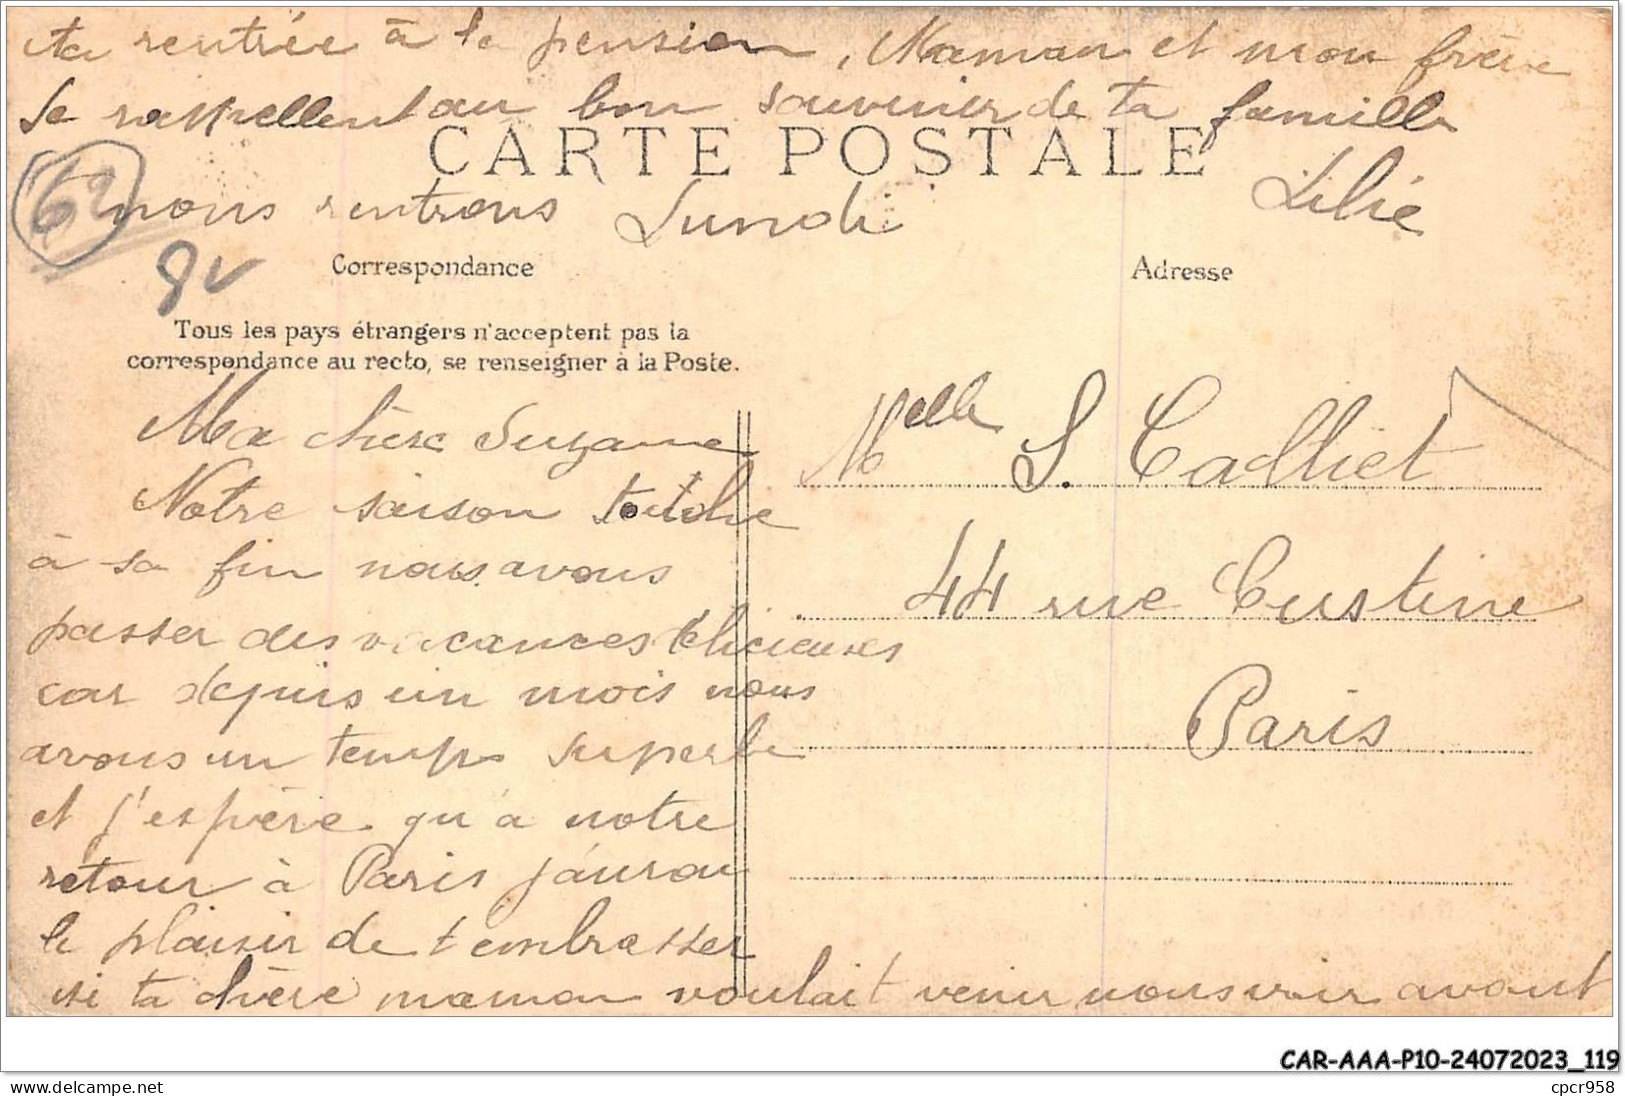 ta rentrée à la pension, Maman et mon frère
se rappellent au bon souvenir de ta famille
CARTE POSTALE
nous rentrons Lundi
Lilie
62
Correspondance
Adresse
Tous les pays étrangers n'acceptent pas la
correspondance au recto, se renseigner à la Poste.
Ma chère Suzanne
Notre saison touche
à sa fin nous avons
passer des vacances délicieuses
car depuis un mois nous
avons un temps superbe
et j'espère qu'à notre
retour à Paris j'aurai
le plaisir de t'embrasser
si ta chère maman voulait venir nous voir avant
Melle S. Calliet
44 rue Custine
Paris
CAR-AAA-P10-24072023_119
www.delcampe.net
cpcr958